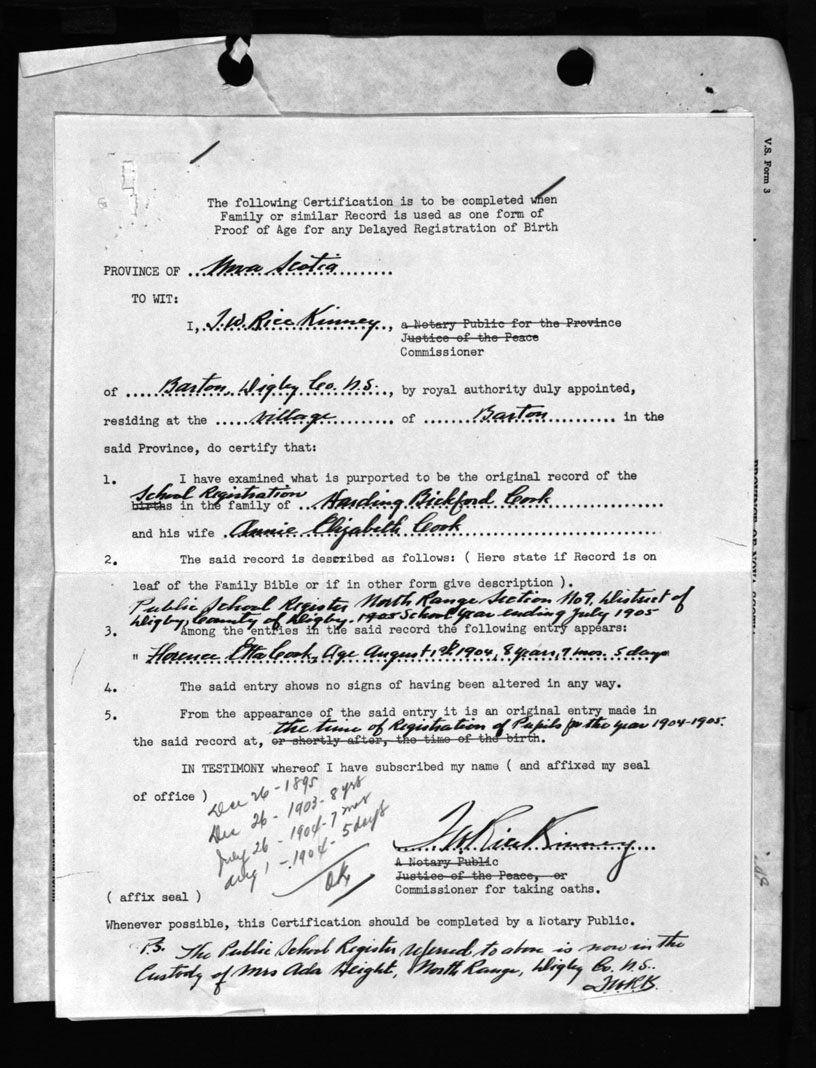 V.S. Form 3
The following Certification is to be completed when
Family or similar Record is used as one form of
Proof of Age for any Delayed Registration of Birth
PROVINCE OF ...Nova Scotia.........
TO WIT:
I, J.W. Rice Kinney, a Notary Public for the Province
Justice of the Peace
Commissioner
of .....Barton, Digby Co. N.S..., by royal authority duly appointed,
residing at the .....village........... of .......Barton........... in the
said Province, do certify that:
1. I have examined what is purported to be the original record of the
School Registration
births in the family of ...Harding Bickford Cook
and his wife .Annie Elizabeth Cook
2. The said record is described as follows: ( Here state if Record is on
leaf of the Family Bible or if in other form give description ).
Public School Register North Range Section No 9, District of
Digby, County of Digby. 1905 School Year ending July 1905
3. Among the entries in the said record the following entry appears:
" Florence Etta Cook, Age August 1st 1904, 8 years, 7 mos. 5 days
4. The said entry shows no signs of having been altered in any way.
5. From the appearance of the said entry it is an original entry made in
the time of Registration of Pupils for the year 1904-1905.
the said record at, or shortly after, the time of the birth.
IN TESTIMONY whereof I have subscribed my name ( and affixed my seal
of office )
Dec 26 - 1895
Dec 26 - 1903 - 8 yrs
July 26 - 1904 - 7 mos
Aug 1 - 1904 - 5 days
OK
J W Rice Kinney
A Notary Public
Justice of the Peace, or
Commissioner for taking oaths.
( affix seal )
Whenever possible, this Certification should be completed by a Notary Public.
P.S. The Public School Register referred to above is now in the
Custody of Mrs Ada Height, North Range, Digby Co. N.S.
J.W.R.K.